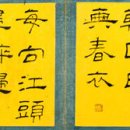 日日
典春衣
每向江頭
盡醉歸